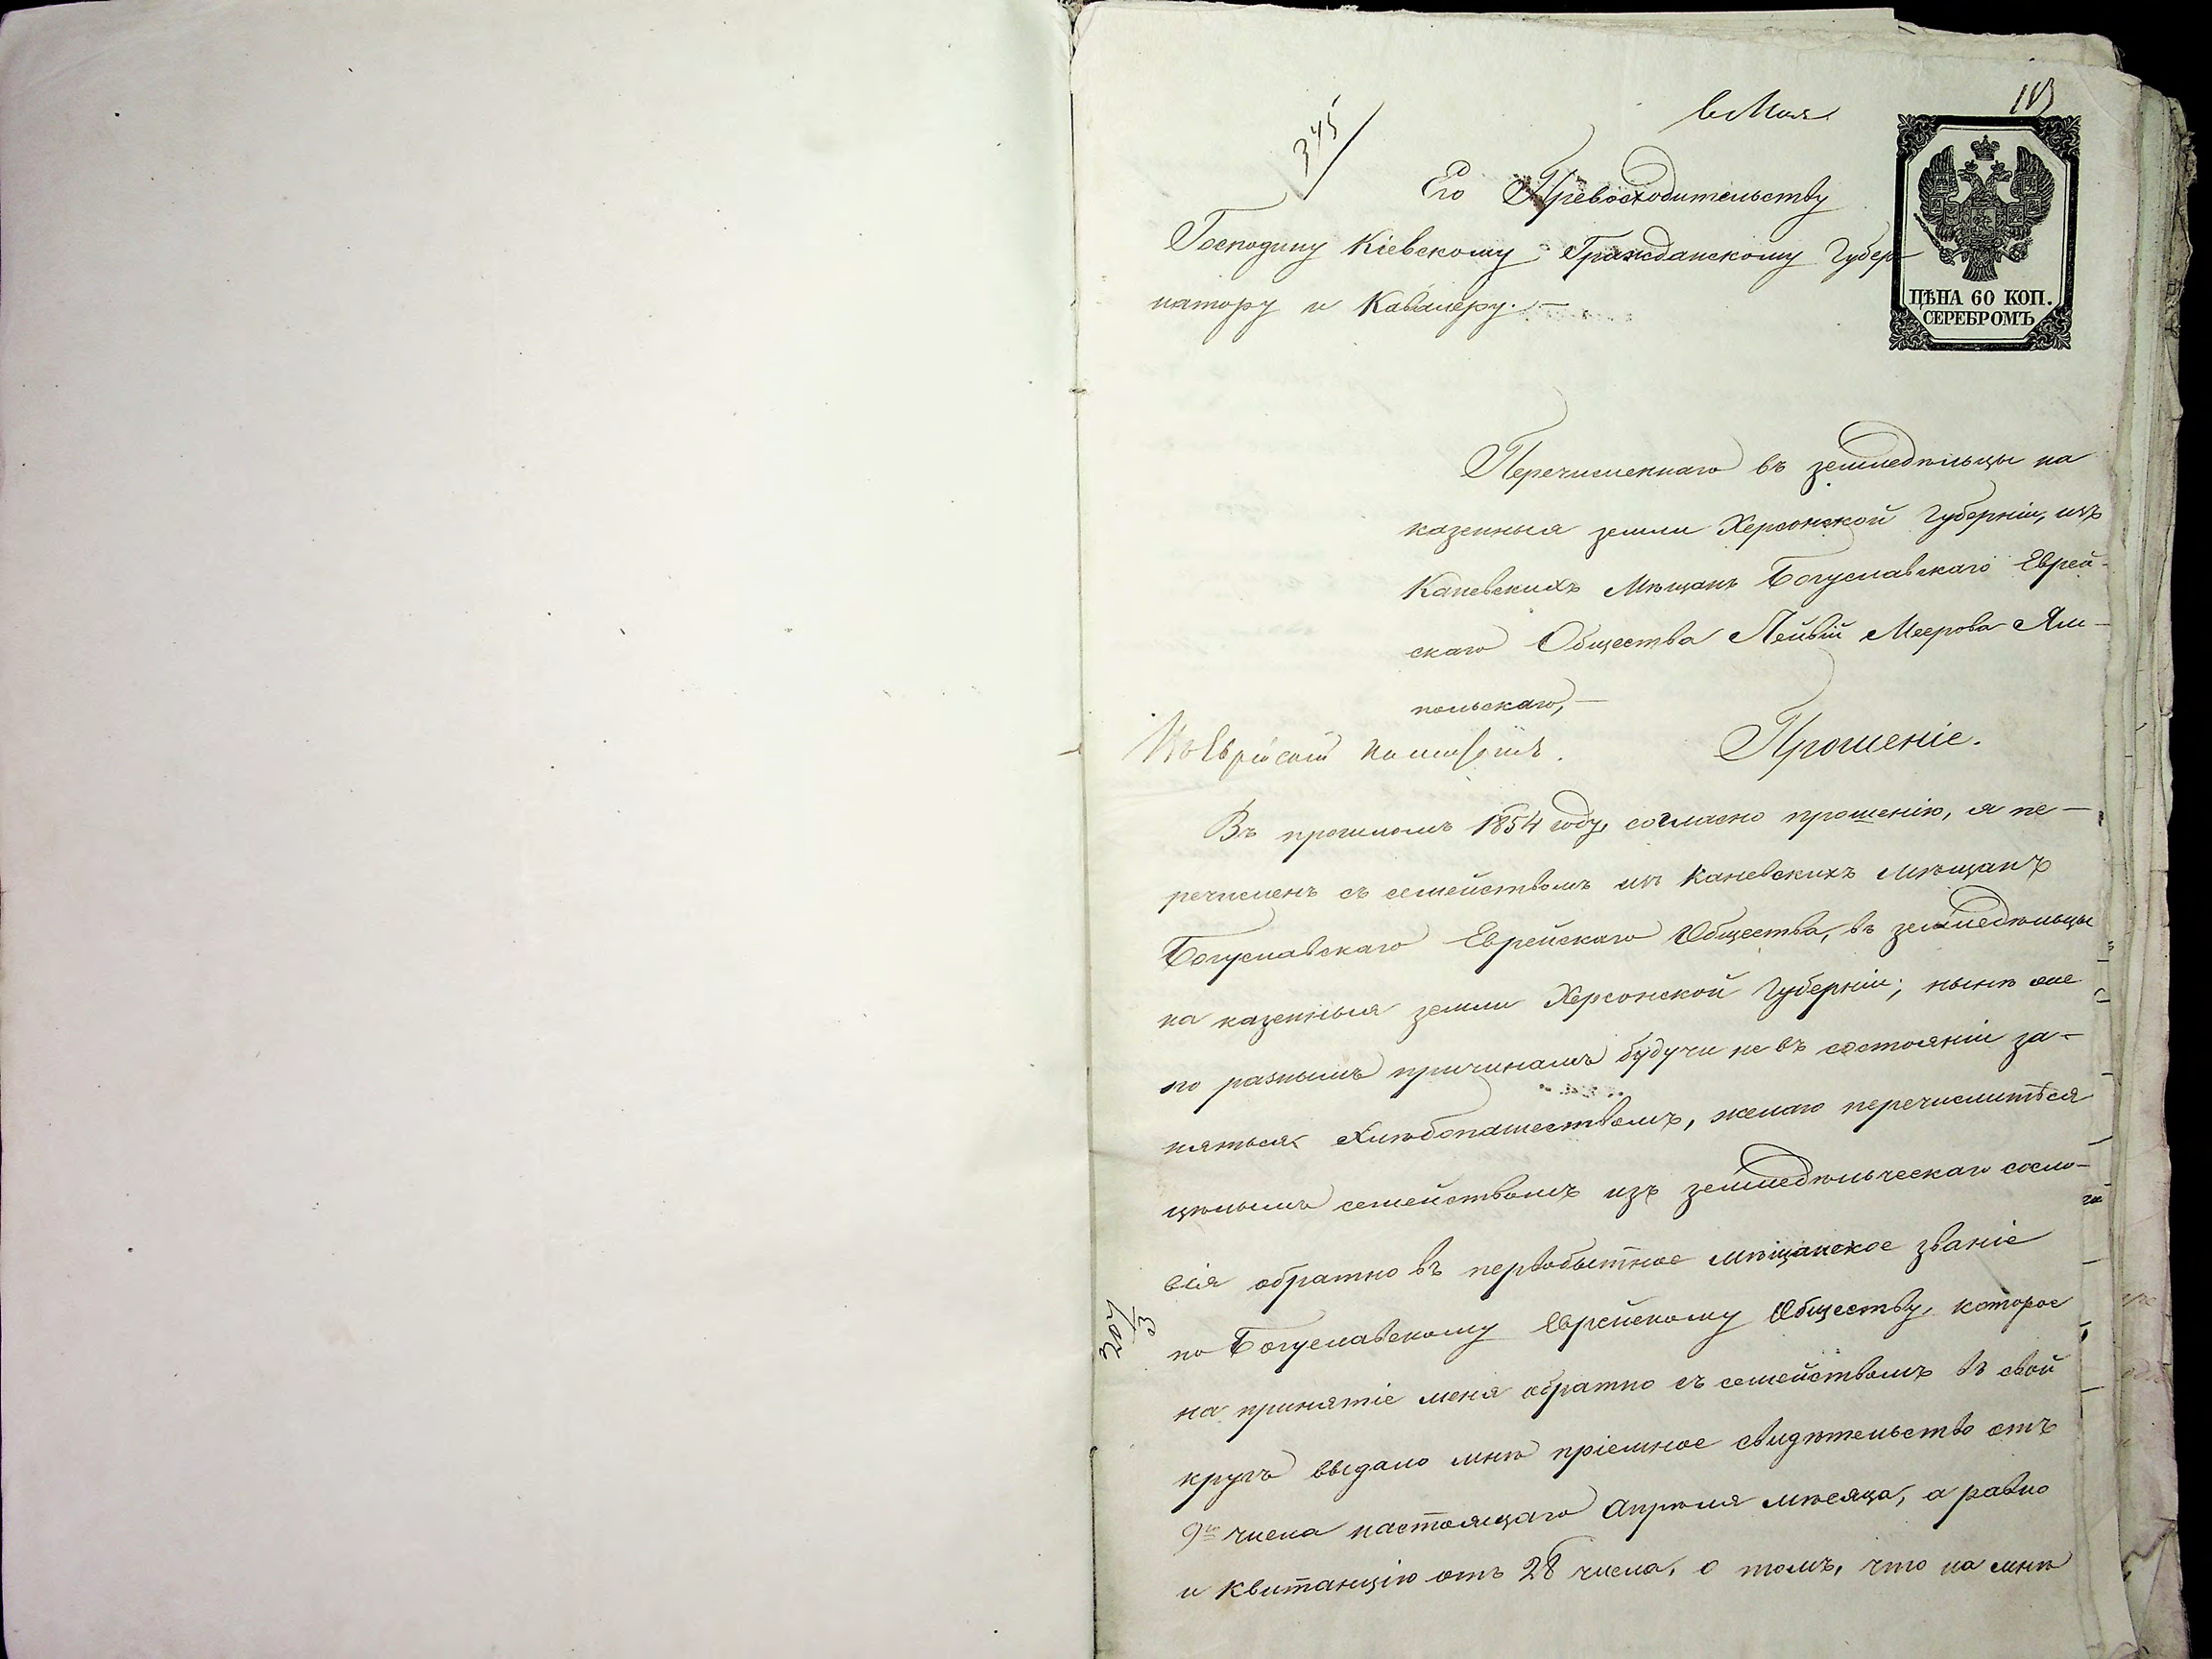 6 Мая
113
345
Его Превосходительству
Господину Кіевскому Гражданскому Губер-
натору и Кавалеру.
ЦѢНА 60 КОП.
СЕРЕБРОМЪ
Перечисленнаго въ земледѣльцы на
казенныя земли Херсонской Губерніи, изъ
Каневскихъ Мѣщанъ Богуславскаго Еврей-
скаго Общества Лейвій Меерова Ям-
польскаго,
Прошеніе.
Въ прошломъ 1854 году, согласно прошенію, я пе-
речисленъ съ семействомъ изъ Каневскихъ мѣщанъ
Богуславскаго Еврейскаго Общества, въ земледѣльцы
на казенныя земли Херсонской Губерніи; нынѣ же
по разнымъ причинамъ будучи не въ состояніи за-
няться хлѣбопашествомъ, желаю перечислиться
цѣлымъ семействомъ изъ земледѣльческаго сосло-
вія обратно въ первобытное мѣщанское званіе
по Богуславскому Еврейскому Обществу, которое
на принятіе меня обратно съ семействомъ въ свой
кругъ выдало мнѣ пріемное свидѣтельство отъ
9го числа настоящаго Апрѣля мѣсяца, а равно
и квитанцію отъ 28 числа, о томъ, что на мнѣ